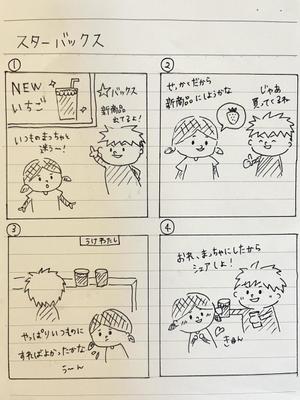 スターバックス
①
NEW
いちご
☆バックス
新商品
出てるよ!
いつものまっちゃと
迷うー!
②
せっかくだから
新商品にしようかな
じゃあ
買ってくるね
③
うけわたし
やっぱりいつものに
すればよかったかな
うーん
④
おれ、まっちゃにしたから
シェアしよ!
きゅん